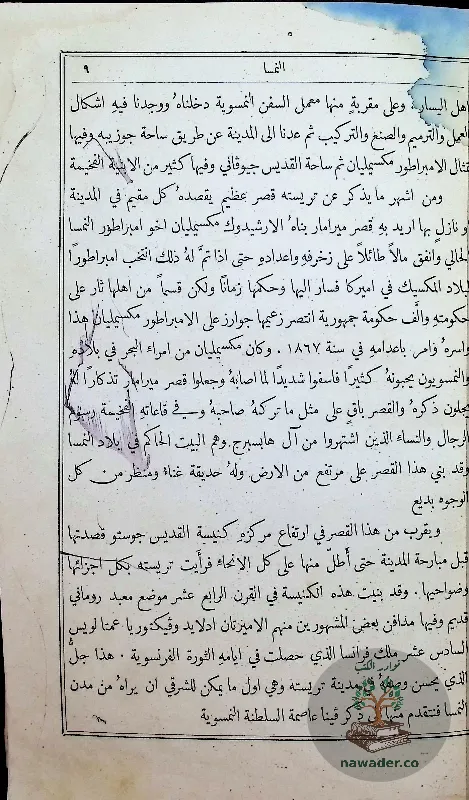 النمسا ٩
اهل اليسار. وعلى مقربةٍ منها معمل السفن النمسوية دخلناهُ ووجدنا فيهِ اشكال
العمل والترميم والصنع والتركيب ثم عدنا الى المدينة عن طريق ساحة جوزيبه وفيها
تمثال الامبراطور مكسيمليان ثم ساحة القديس جيوڤاني وفيها كثير من الابنية الفخيمة
ومن اشهر ما يذكر عن تريسته قصر عظيم يقصدهُ كل مقيم في المدينة
او نازل بها اريد به قصر ميرامار بناهُ الارشيدوك مكسيمليان اخو امبراطور النمسا
الحالي وانفق مالاً طائلاً على زخرفهِ واعدادهِ حتى اذا تمَّ لهُ ذلك انتخب امبراطورًا
لبلاد المكسيك في اميركا فسار اليها وحكمها زمانًا ولكن قسمًا من اهلها ثار على
حكومتهِ والَّف حكومة جمهورية انتصر زعيمها جوارز على الامبراطور مكسيمليان هذا
واسرهُ وامر باعدامهِ في سنة ١٨٦٧. وكان مكسيمليان من امراء البحر في بلادهِ
والنمسويون يحبونهُ كثيرًا فاسفوا شديدًا لما اصابهُ وجعلوا قصر ميرامار تذكارًا لهُ
يجلون ذكرهُ والقصر باقٍ على مثل ما تركهُ صاحبهُ وفي قاعاته الفخيمة رسوم
الرجال والنساء الذين اشتهروا من آل هابسبرج وهم البيت الحاكم في بلاد النمسا
وقد بني هذا القصر على مرتفع من الارض ولهُ حديقة غناء ومنظر من كل
الوجوه بديع
ويقرب من هذا القصر في ارتفاع مركزهِ كنيسة القديس جوستو قصدتها
قبل مبارحة المدينة حتى أُطلَّ منها على كل الانحاء فرأيت تريسته بكل اجزائها
وضواحيها. وقد بنيت هذه الكنيسة في القرن الرابع عشر موضع معبد روماني
قديم وفيها مدافن بعض المشهورين منهم الاميرتان ادلايد وڤيكتوريا عمتا لويس
السادس عشر ملك فرانسا الذي حصلت في ايامهِ الثورة الفرنسوية. هذا جلُّ
الذي يحسن وصفهُ في مدينة تريسته وهي اول ما يمكن للشرقي ان يراهُ من مدن
النمسا فنتقدم منها الى ذكر ڤينا عاصمة السلطنة النمسوية
نوادر الكتب
nawader.co